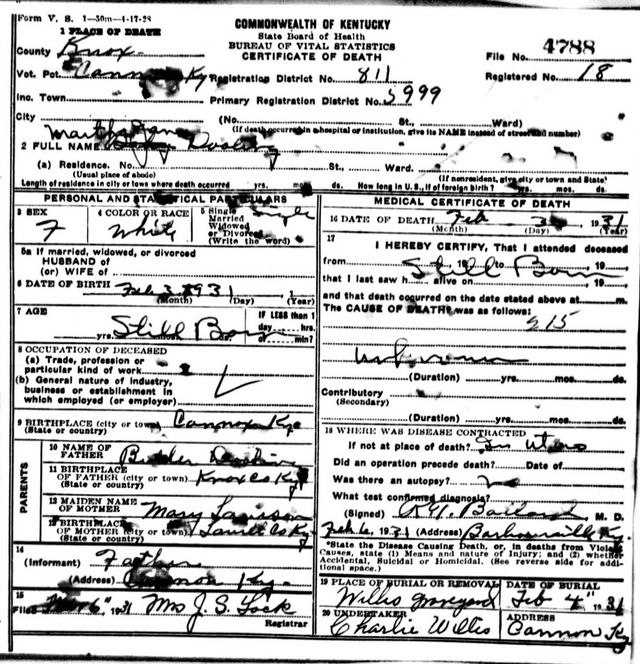 Form V. S. 1-50m-4-17-28
COMMONWEALTH OF KENTUCKY
State Board of Health
BUREAU OF VITAL STATISTICS
CERTIFICATE OF DEATH
1 PLACE OF DEATH
County Knox
File No. 4788
Vot. Pct. Cannon Ky Registration District No. 811
Registered No. 18
Inc. Town Primary Registration District No. 5999
City (No. St., Ward)
(If death occurred in a hospital or institution, give its NAME instead of street and number)
Martha Jane
2 FULL NAME
(a) Residence. No. St., Ward.
(Usual place of abode) (If nonresident, give city or town and State)
Length of residence in city or town where death occurred yrs. mos. ds. How long in U. S., if of foreign birth? yrs. mos. ds.
PERSONAL AND STATISTICAL PARTICULARS
3 SEX F
4 COLOR OR RACE White
5 Single Married Widowed or Divorced (Write the word) Single
5a If married, widowed, or divorced
HUSBAND of
(or) WIFE of
6 DATE OF BIRTH Feb 3 1931
(Month) (Day) (Year)
7 AGE Still Born
yrs.
IF LESS than 1
day hrs.
or min?
8 OCCUPATION OF DECEASED
(a) Trade, profession or
particular kind of work
(b) General nature of industry,
business or establishment in
which employed (or employer)
9 BIRTHPLACE (city or town) Cannon Ky
(State or country)
PARENTS
10 NAME OF
FATHER
11 BIRTHPLACE
OF FATHER (city or town) Knox Co Ky
(State or country)
12 MAIDEN NAME
OF MOTHER Mary
13 BIRTHPLACE
OF MOTHER (city or town) Laurel Co Ky
(State or country)
14
(Informant) Father
(Address) Cannon Ky.
15
Filed 1931 Mrs J. S. Lock
Registrar
MEDICAL CERTIFICATE OF DEATH
16 DATE OF DEATH Feb 3 1931
(Month) (Day) (Year)
17
I HEREBY CERTIFY, That I attended deceased
from 19 to 19
Still Born
that I last saw h alive on 19
and that death occurred on the date stated above at m.
The CAUSE OF DEATH was as follows:
215
unknown
(Duration) yrs. mos. ds.
Contributory
(Secondary)
(Duration) yrs. mos. ds.
18 WHERE WAS DISEASE CONTRACTED
If not at place of death? In utero
Did an operation precede death? Date of
Was there an autopsy? no
What test confirmed diagnosis?
(Signed) M. D.
Feb 6, 1931 (Address) Barbourville Ky.
*State the Disease Causing Death, or, in deaths from Violent
Causes, state (1) Means and nature of Injury; and (2) whether
Accidental, Suicidal or Homicidal. (See reverse side for addi-
tional space.)
19 PLACE OF BURIAL OR REMOVAL
Willis graveyard
DATE OF BURIAL
Feb 4" 1931
20 UNDERTAKER
Charlie Willis
ADDRESS
Cannon Ky